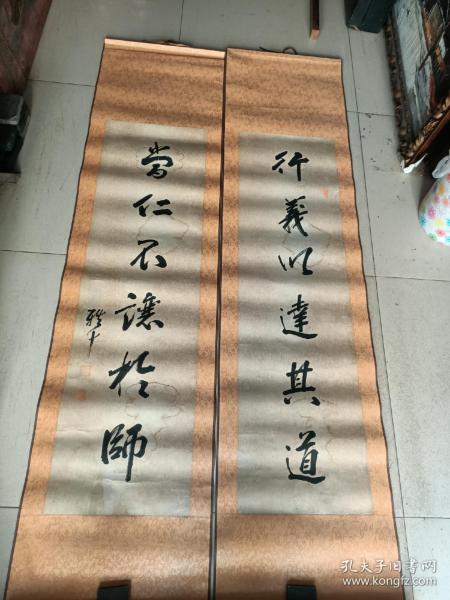 行義以達其道
當仁不讓於師
孔夫子旧书网
www.kongfz.com